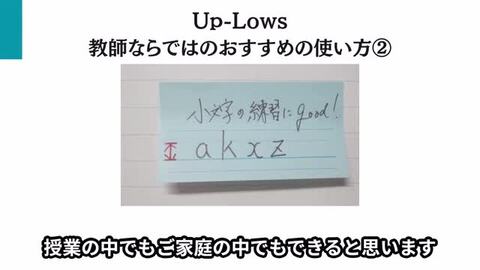 Up-Lows
教師ならではのおすすめの使い方②
小文字の練習にgood!
a k x z
授業の中でもご家庭の中でもできると思います